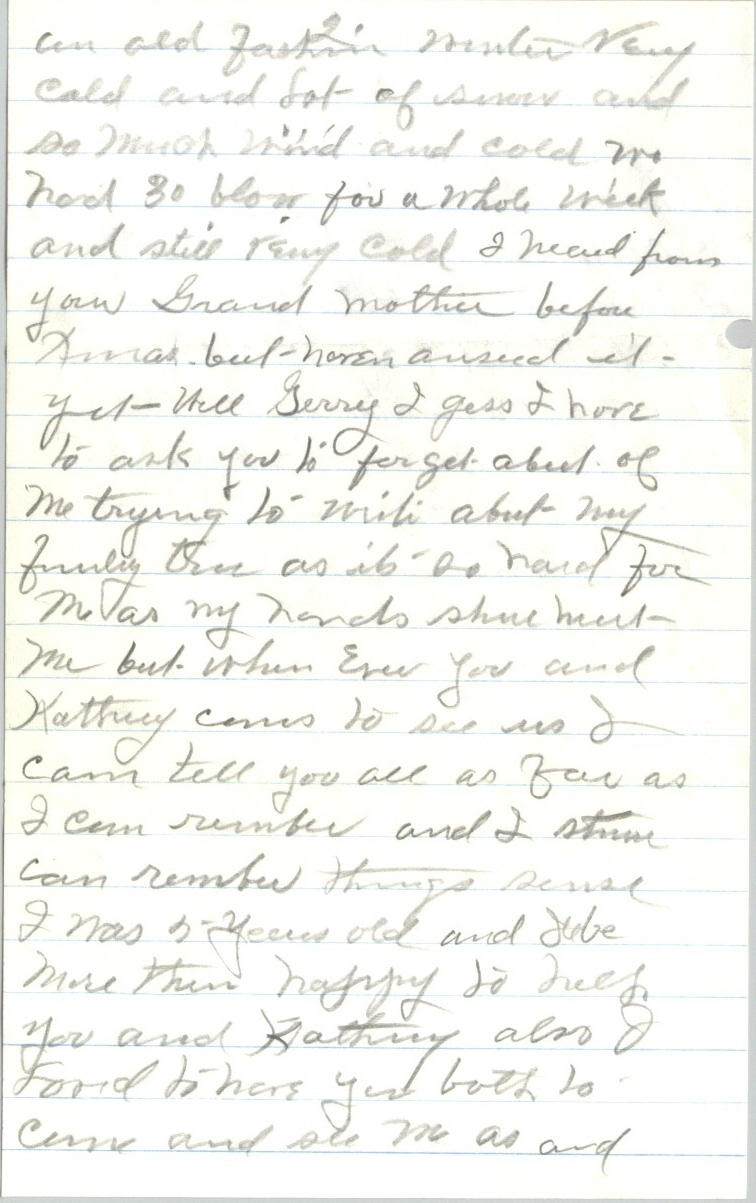 2
an old Fashin winter Very
Cold and lot of snow and
so much wind and cold we
had 30 blow for a whole week
and still Very Cold I heard from
your Grand mother before
Xmas. but haven ansed it -
yet - Well Gerry I gess I have
to ask you to forget about of
Me trying to write about my
fmily tree as its so hard for
Me as my hands shue hurt
Me but when Ever you and
Kathny coms to see us I
can tell you all as Far as
I can rember and I shure
can rember things sense
I was 5 Years old and I'be
more then happy to help
you and Kathny also I
loved to have you both to
come and see me as and